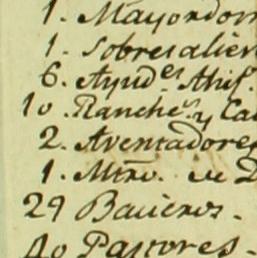 1. Mayordom
1. Sobresalien
6. Ayud.es Ahij.
10. Ranche.s y Ca
2. Aventadores
1. Mtro. de D
29 Baqueros.
40 Pastores.